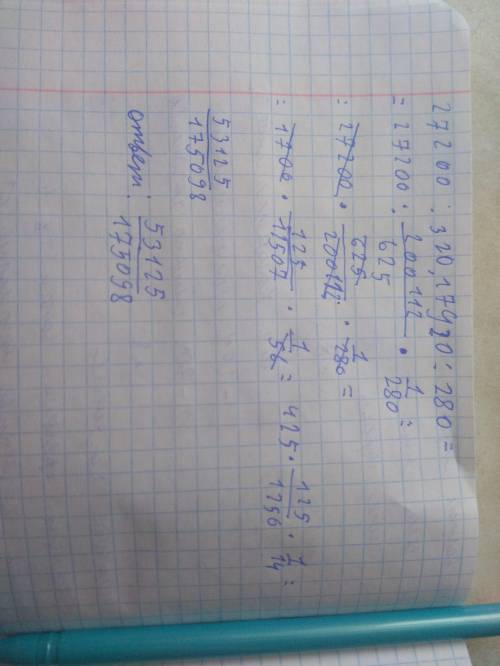 27200 : 320,1792 0 : 280 =
= 27200 : 200112/625 · 1/280 =
= 27200 · 625/200112 · 1/280 =
= 1700 · 125/12507 · 1/56 = 425 · 125/1756 · 1/14 =
53125/175098
ответ: 53125/175098